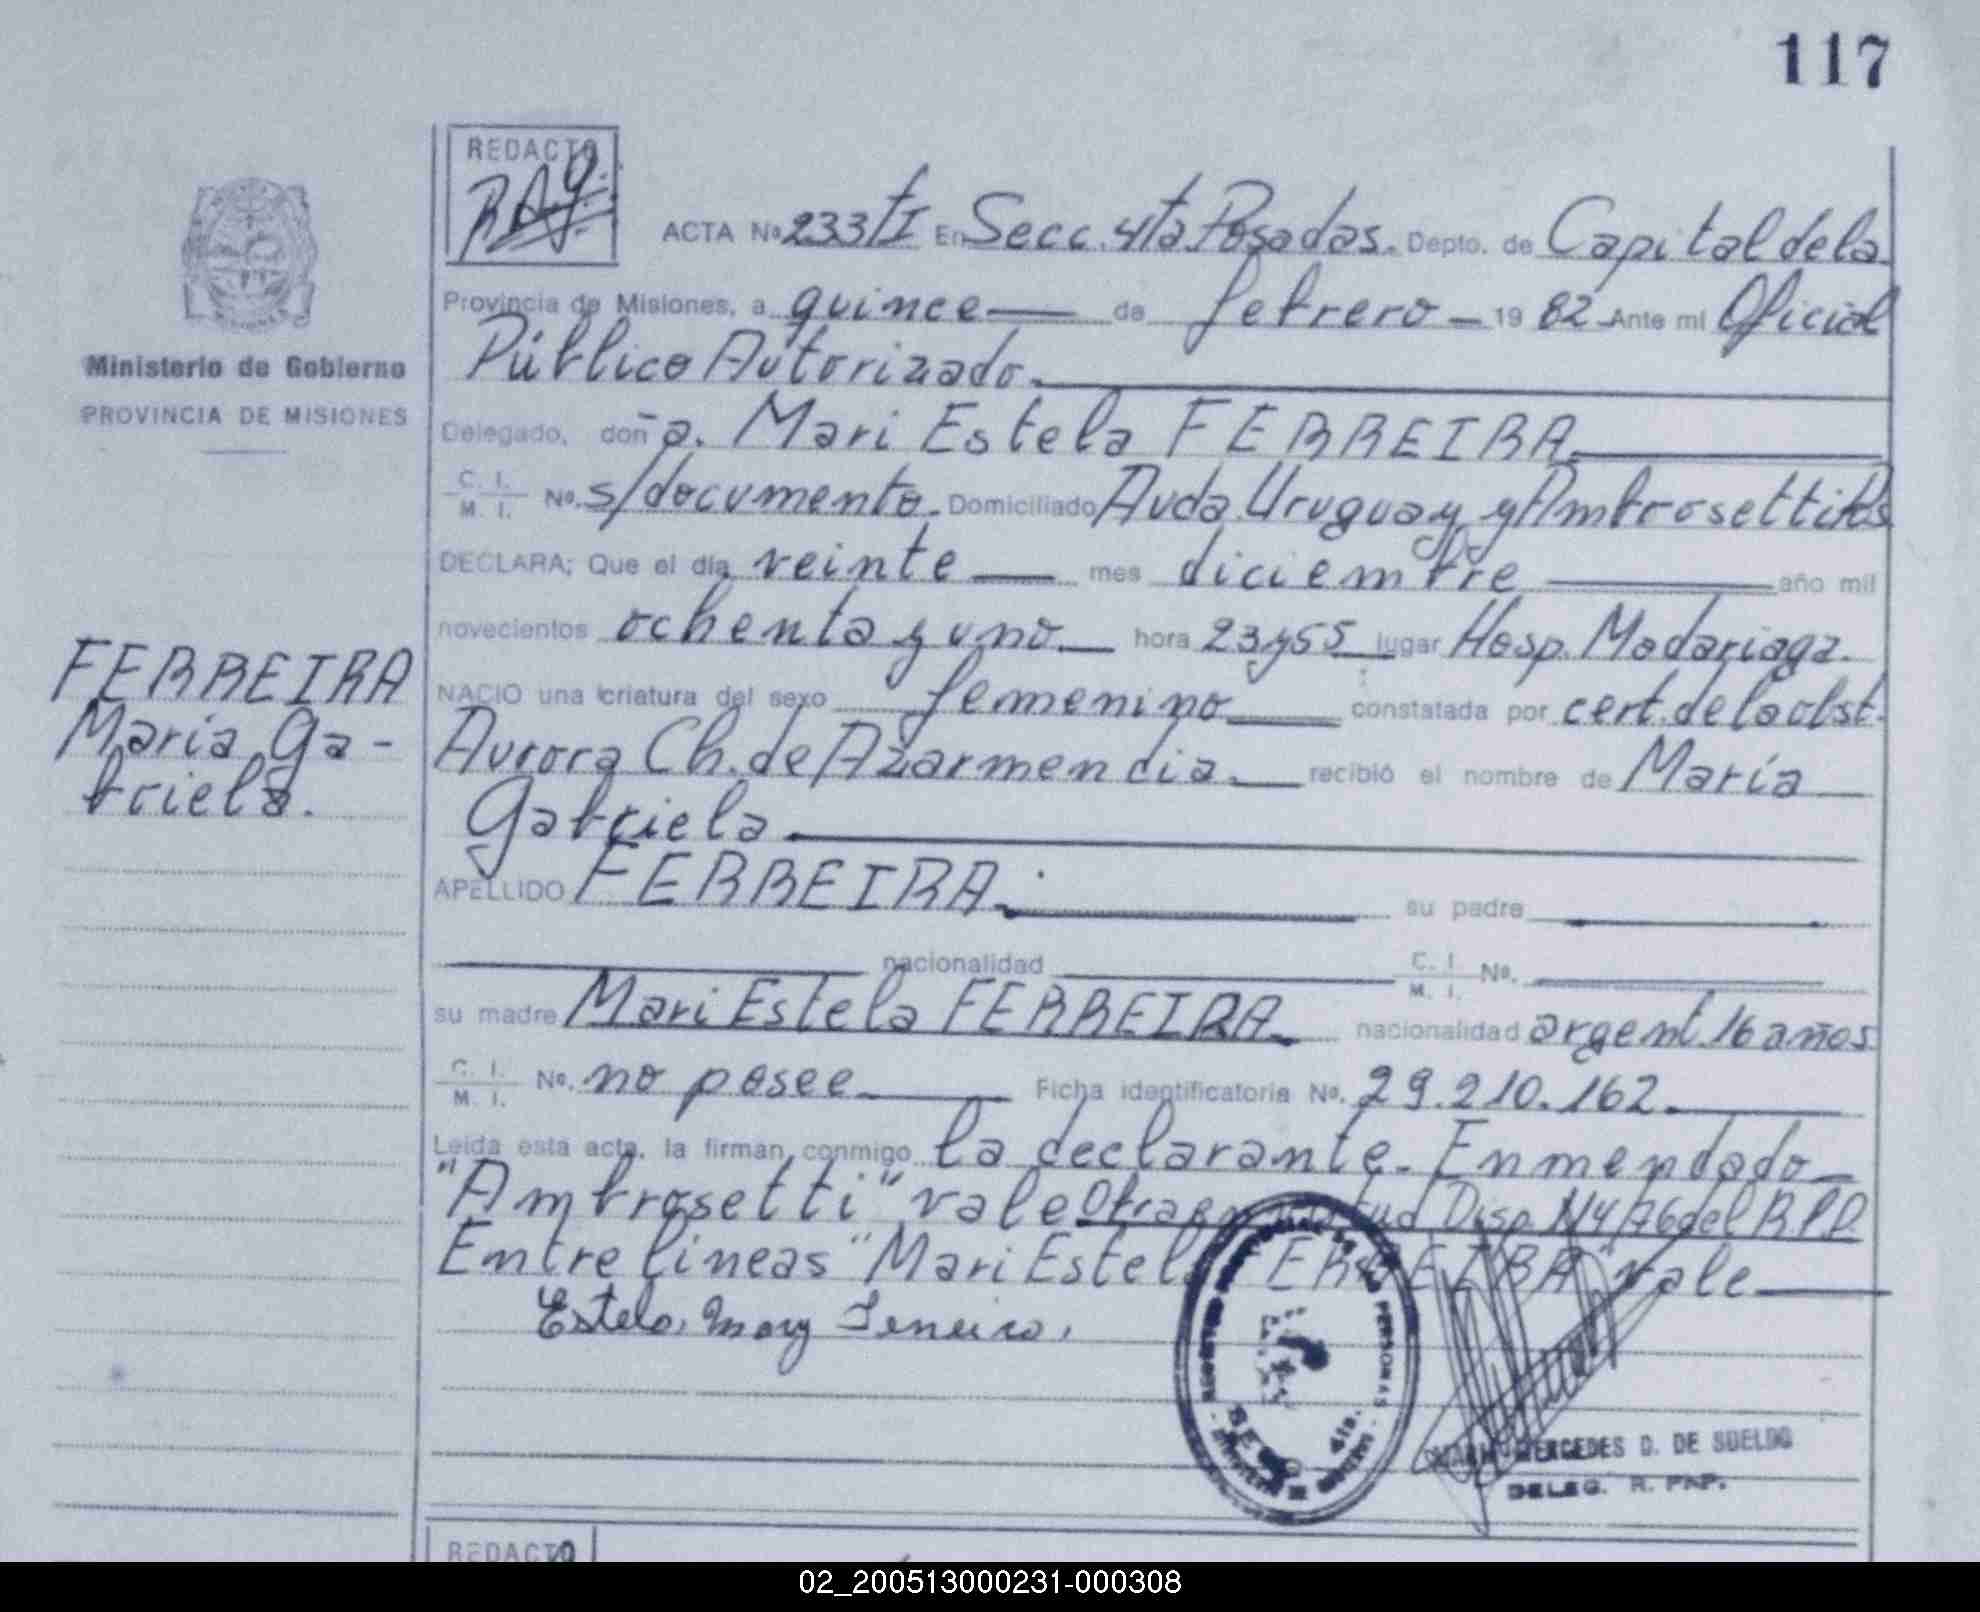 117
REDACTO
ACTA Nº 233 tI En Secc. 4ta Posadas. Depto. de Capital de la
Provincia de Misiones, a quince de febrero 1982 Ante mi Oficial
Público Autorizado.
Ministerio de Gobierno
PROVINCIA DE MISIONES
Delegado, doña. Mari Estela FERREIRA
C. I.
M. I. Nº. s/documento. Domiciliado Avda. Uruguay y Ambrosetti
DECLARA; Que el día veinte mes diciembre año mil
novecientos ochenta y uno hora 23 y 55 lugar Hosp. Madariaga.
NACIO una criatura del sexo femenino constatada por cert. de la obst.
Aurora Ch. de Azarmendia. recibió el nombre de María
Gabriela
FERREIRA
María Ga-
briela.
APELLIDO FERREIRA. su padre
nacionalidad C. I. M. I. Nº.
su madre Mari Estela FERREIRA. nacionalidad argent. 16 años
C. I.
M. I. Nº. no posee Ficha identificatoria Nº. 29.210.162.
Leida esta acta, la firman conmigo la declarante. Enmendado
"Ambrosetti" vale Disp. N4/76 del R.P.P.
Entre lineas "Mari Estela FERREIRA" vale
Estela, Mary Ferreira,
PERSONAS
MERCEDES D. DE SUELDO
DELEG. R. PNP.
REDACTO
02_200513000231-000308